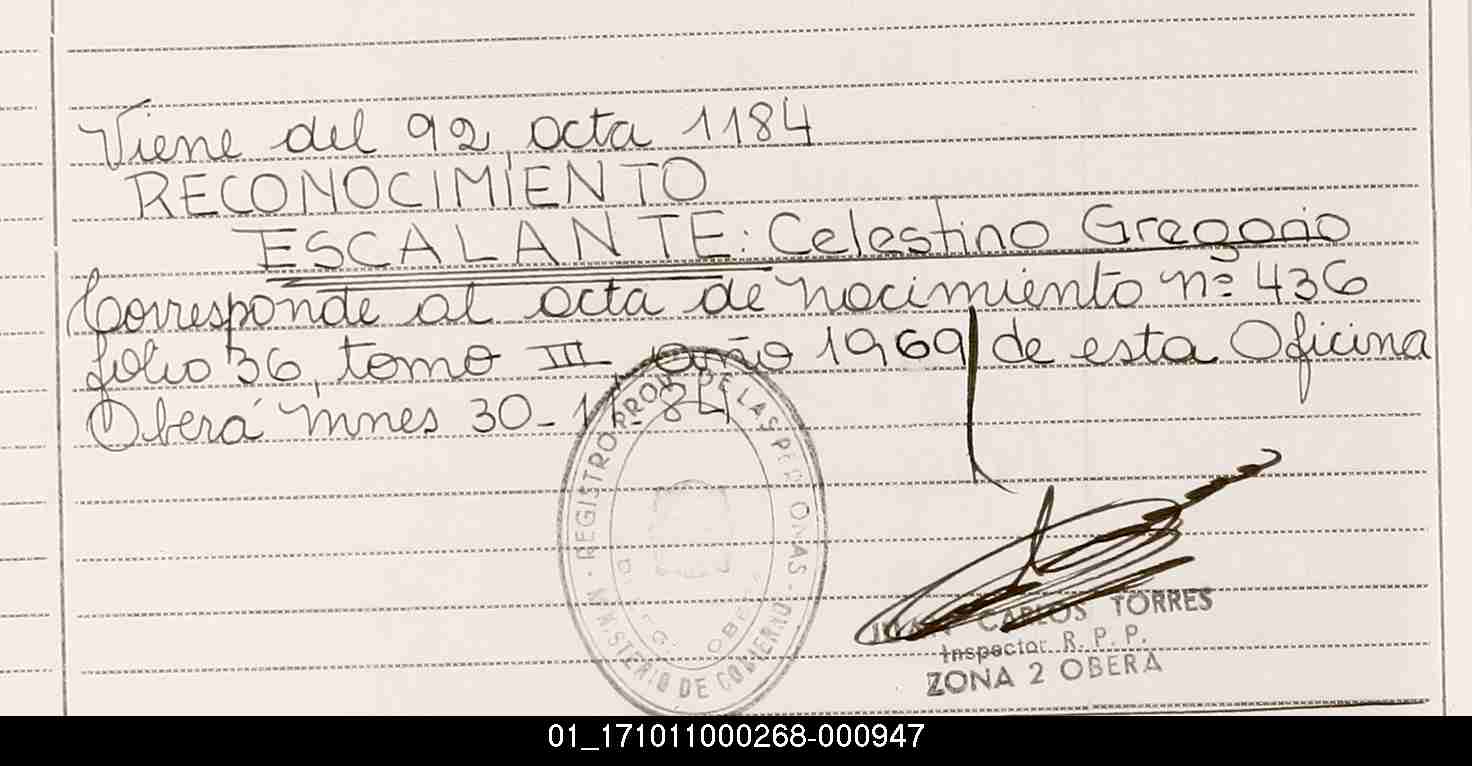 Viene del 92, acta 1184
RECONOCIMIENTO
ESCALANTE: Celestino Gregorio
Corresponde al acta de nacimiento nº 436
folio 36, tomo III año 1969 de esta Oficina
Oberá Mnes 30-11-84
REGISTRO PROV. DE LAS PERSONAS
MINISTERIO DE GOBIERNO
OBERA
JUAN CARLOS TORRES
Inspector R. P. P.
ZONA 2 OBERA
01_171011000268-000947